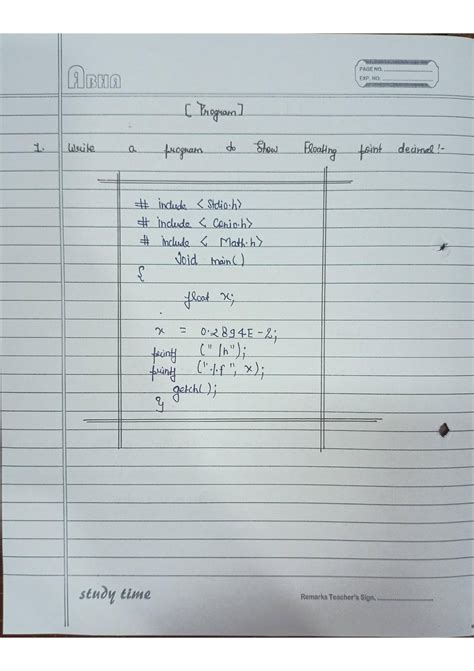 ABHA
PAGE NO.
EXP. NO.
[ Program ]
1. Write a program do Show Floating point decimal :-
# include < Stdio.h>
# include < Conio.h>
# include < Math.h>
Void main()
{
float x;
x = 0.2894E-2;
printf ("\n");
printf ("%f", x);
getch();
}
study time
Remarks Teacher's Sign.